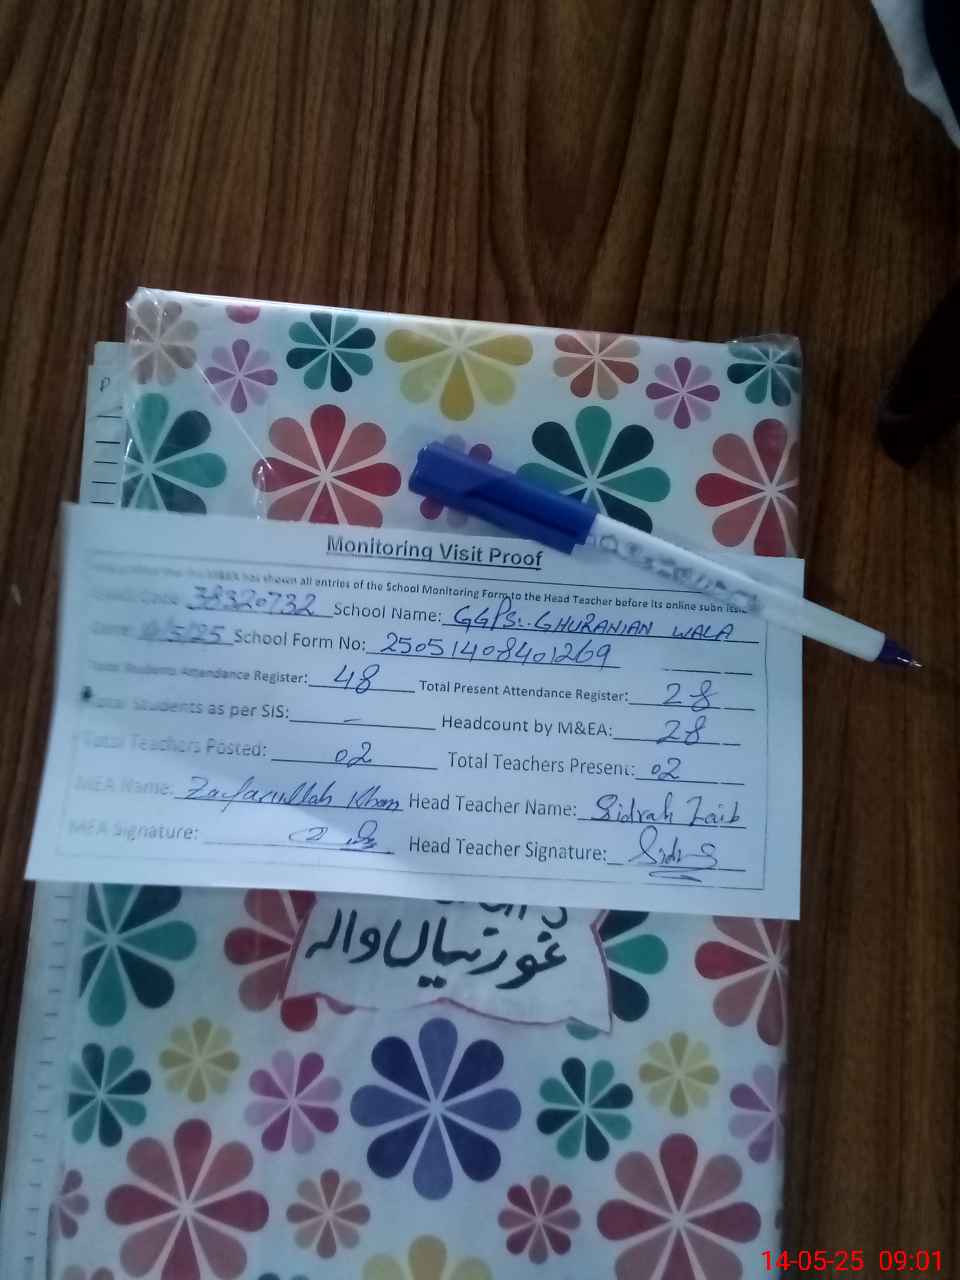 Monitoring Visit Proof
has shown all entries of the School Monitoring Form to the Head Teacher before its online
38320732 School Name: GGPS. GHURANIAN WALA
/5/25 School Form No: 25051408401269
Total Students Attendance Register: 48 Total Present Attendance Register: 28
Total Students as per SIS: - Headcount by M&EA: 28
Total Teachers Posted: 02 Total Teachers Present: 02
MEA Name: Zafarullah Khan Head Teacher Name: Sidrah Zaib
MEA Signature: Head Teacher Signature:
غورنیاں والہ
14-05-25 09:01